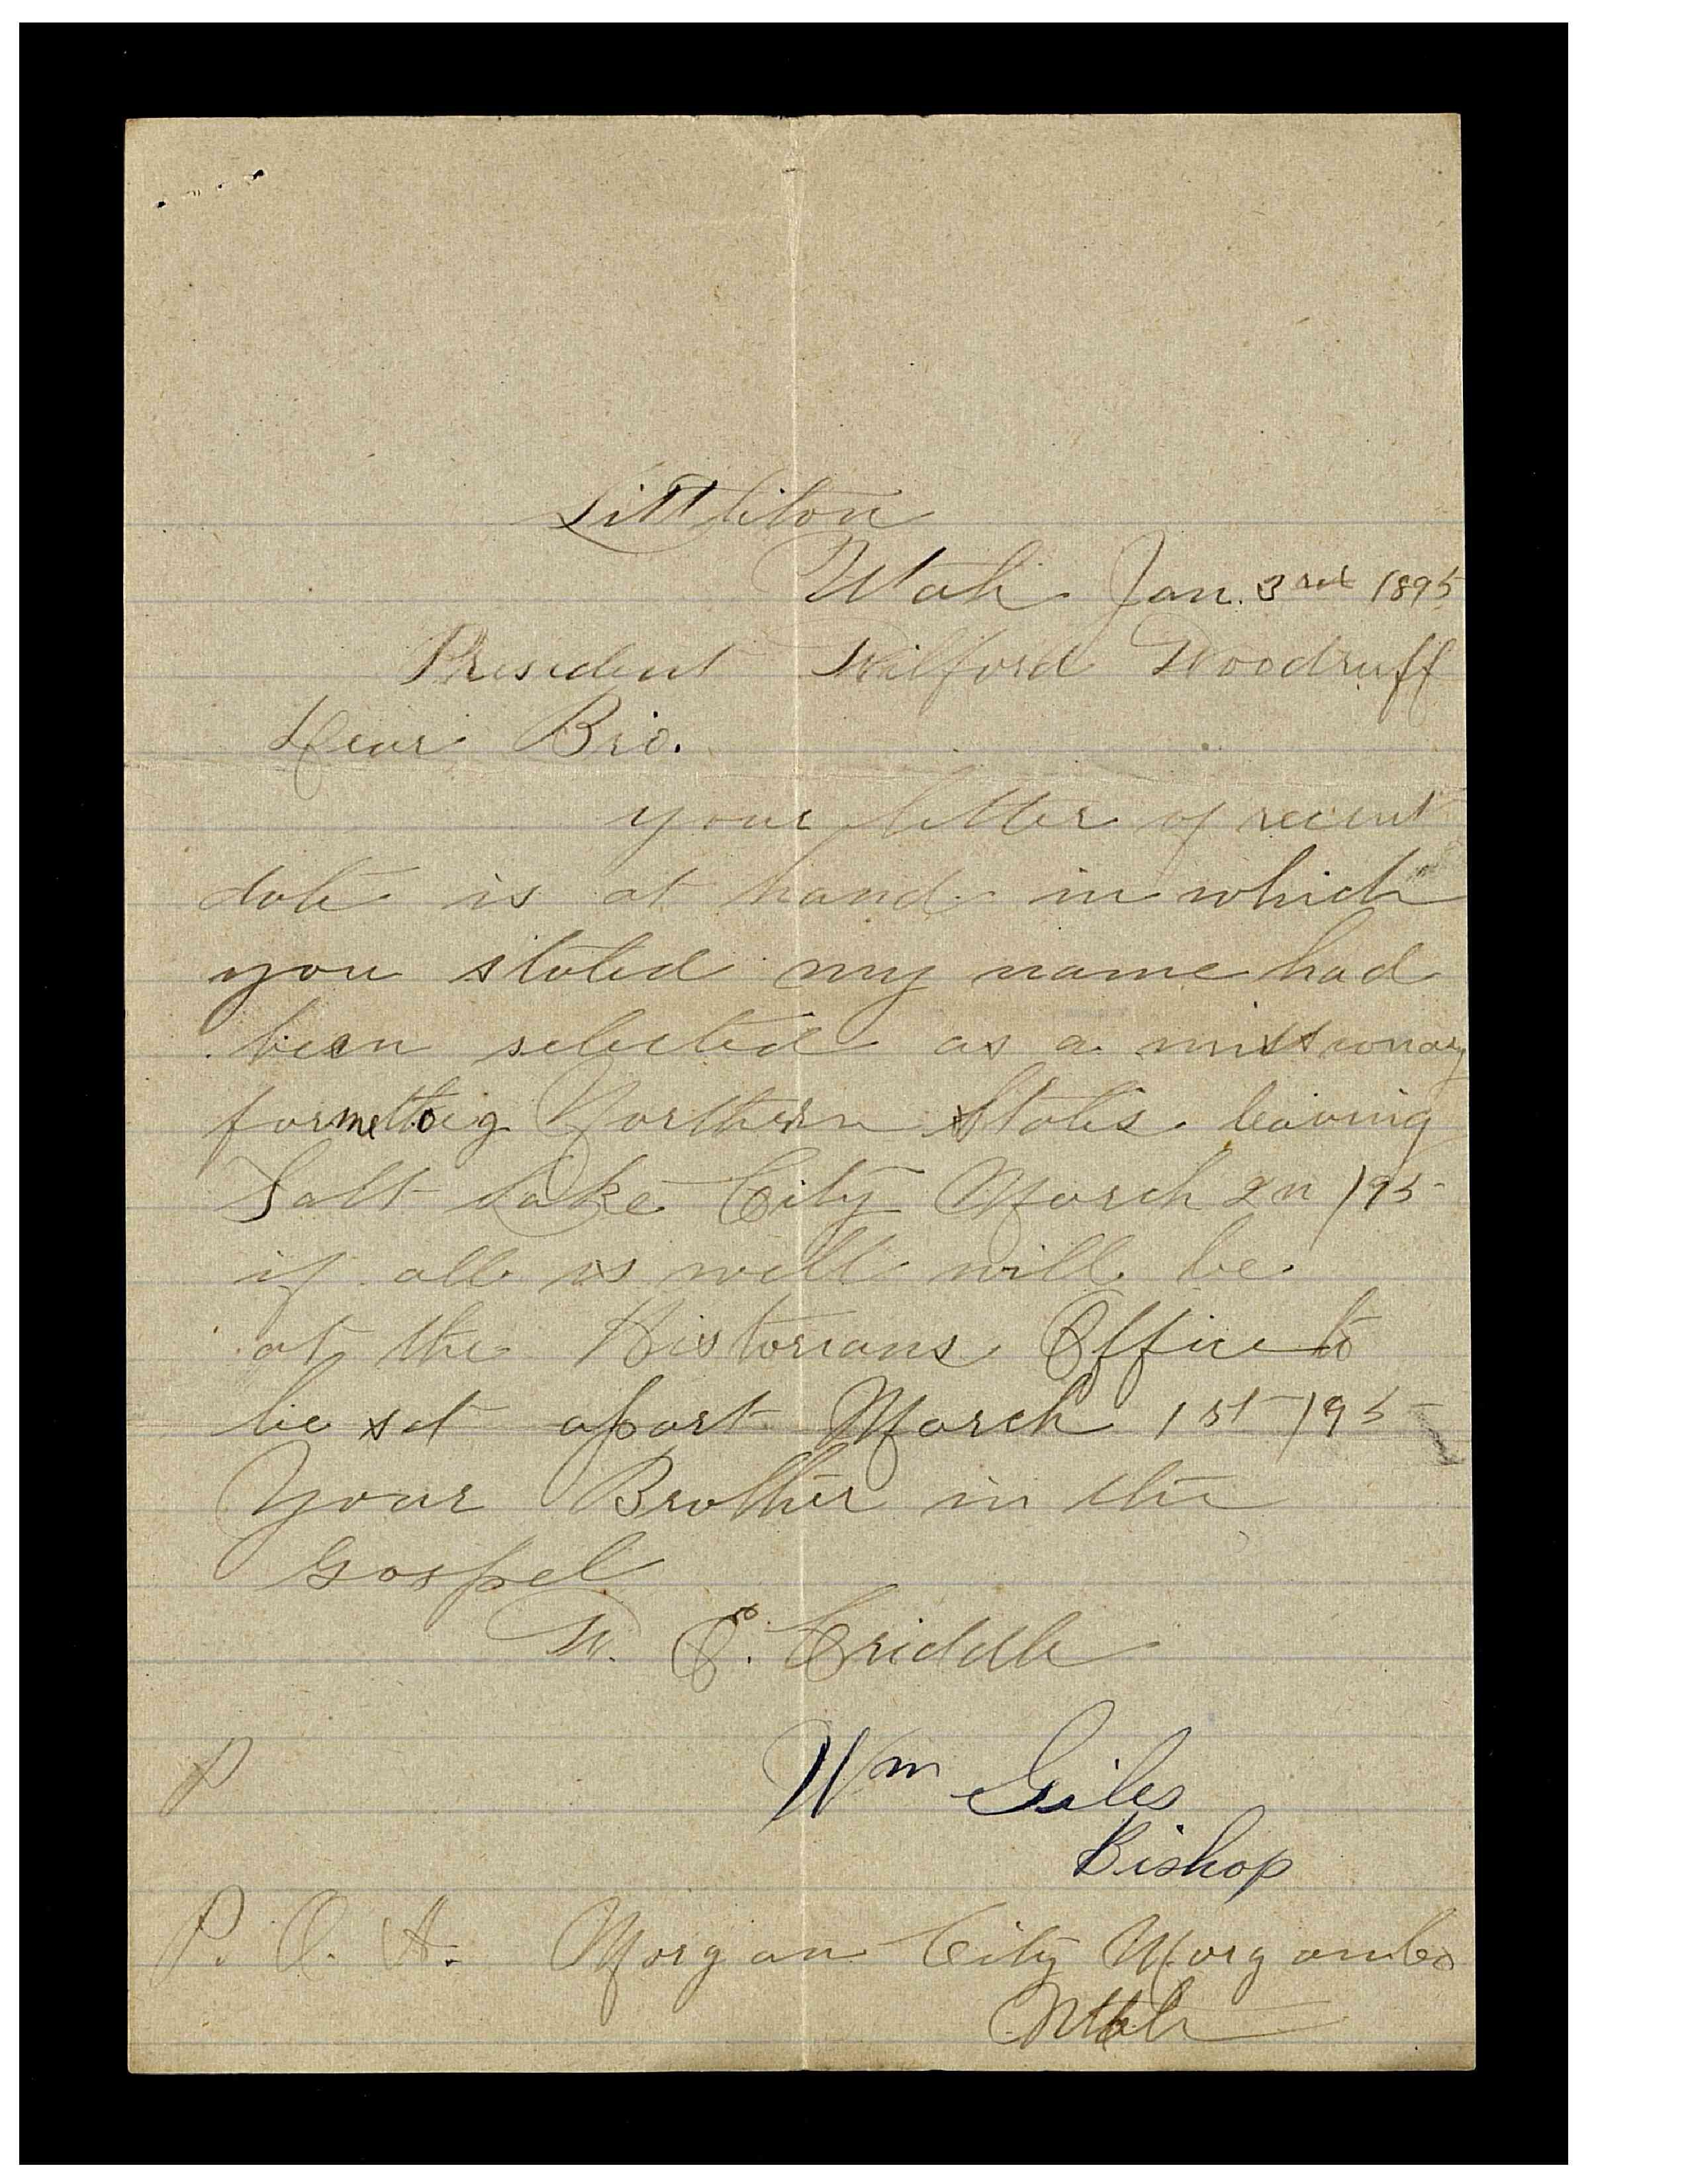 Littleton
Utah Jan. 3rd 1895
President Wilford Woodruff
Dear Bro.
your letter of recent
date is at hand in which
you stated my name had
been selected as a missionary
Northern States leaving
Salt Lake City March 2n /95
if all is well will be
at the Historians Office to
be set apart March 1st /95
Your Brother in the
Gospel
W. E. Criddle
P
Wm Giles
Bishop
P. O. A. Morgan City Morgan Co
Utah